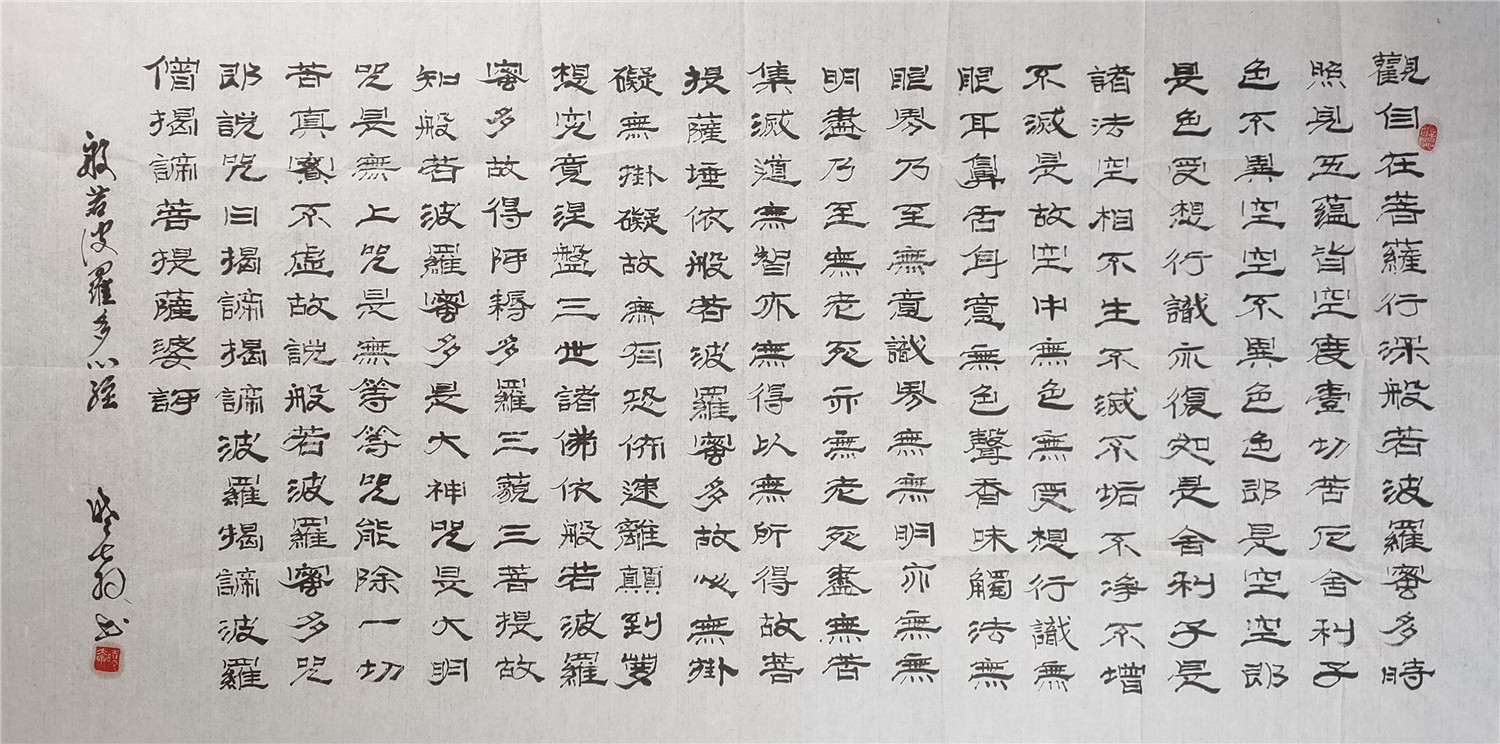 觀自在菩薩行深般若波羅蜜多時
照見五蘊皆空度壹切苦厄舍利子
色不異空空不異色色即是空空即
是色受想行識亦復如是舍利子是
諸法空相不生不滅不垢不淨不增
不滅是故空中無色無受想行識無
眼耳鼻舌身意無色聲香味觸法無
眼界乃至無意識界無無明亦無無
明盡乃至無老死亦無老死盡無苦
集滅道無智亦無得以無所得故菩
提薩埵依般若波羅蜜多故心無掛
礙無掛礙故無有恐怖遠離顛到夢
想究竟涅盤三世諸佛依般若波羅
蜜多故得阿耨多羅三藐三菩提故
知般若波羅蜜多是大神咒是大明
咒是無上咒是無等等咒能除一切
苦真實不虛故說般若波羅蜜多咒
即說咒曰揭諦揭諦波羅揭諦波羅
僧揭諦菩提薩婆訶
般若波羅多心經
书